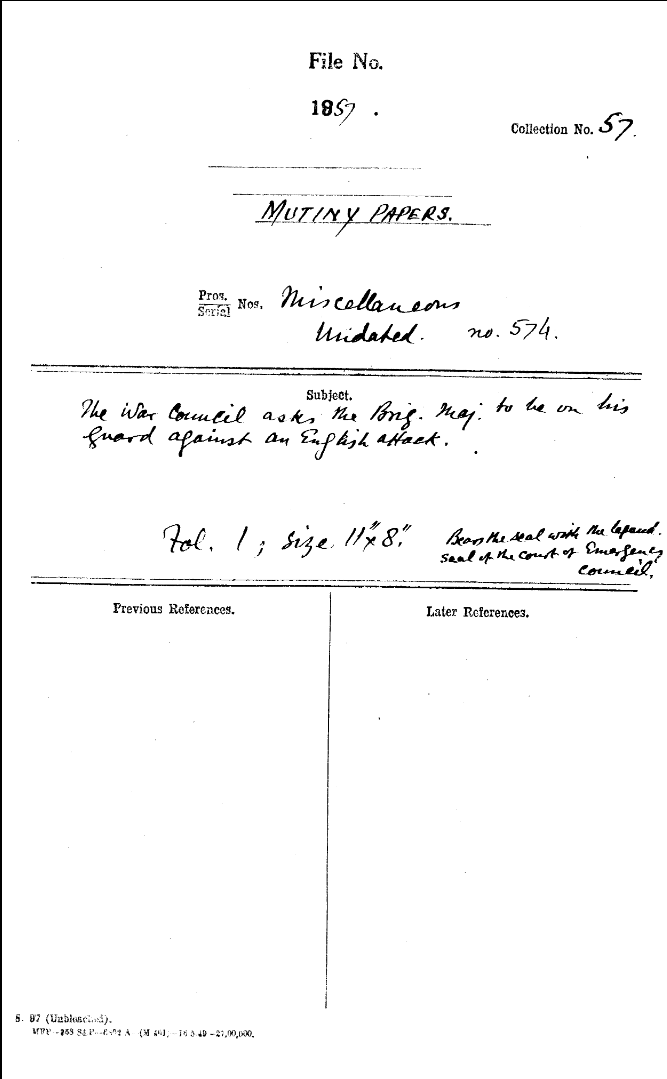 File No.
1857 .
Collection No. 57.
MUTINY PAPERS.
Pros.
Serial Nos. Miscellaneous
Undated. no. 574.
Subject.
The War Council asks the Brig. Maj. to be on his
guard against an English attack.
Fol. 1 ; size 11"x8".
Bears the seal with the legend.
seal of the court of Emergency
council.
Previous References.
Later References.
S. 97 (Unbleached).